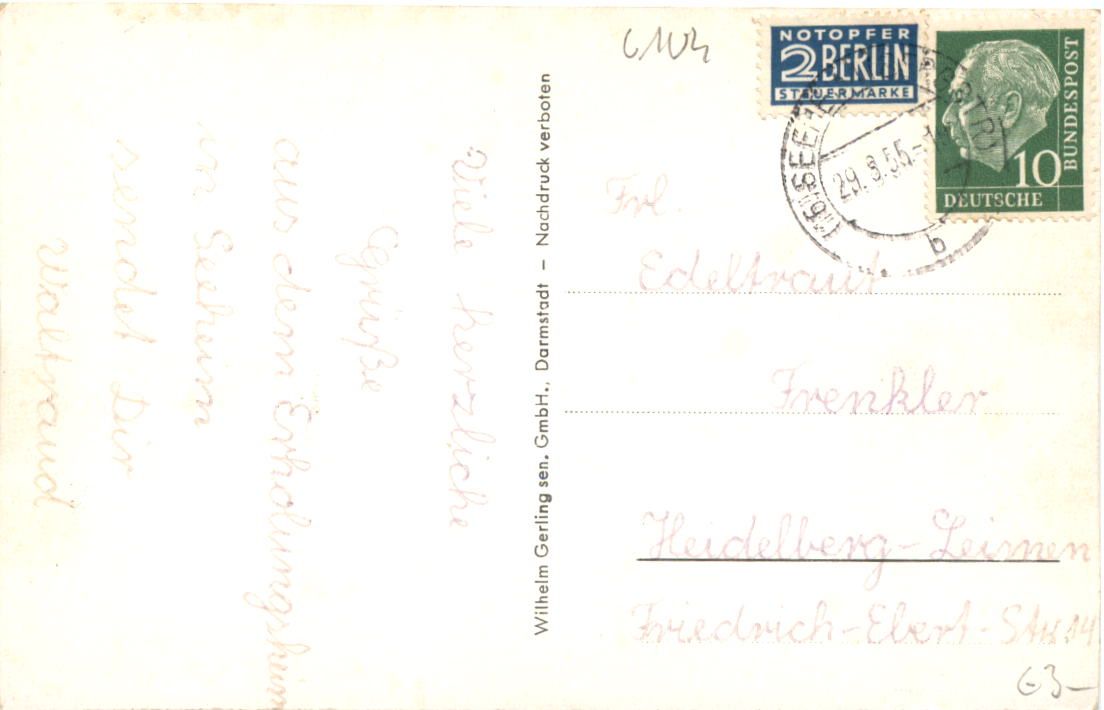 6104
NOTOPFER
2 BERLIN
STEUERMARKE
BUNDESPOST
10
DEUTSCHE
(16) SEEHEIM BERGSTR
29. 8.55.-1
b
Viele herzliche
Grüße
aus dem Erholungsheim
in Seeheim
sendet Dir
Waltraud
Wilhelm Gerling sen. GmbH., Darmstadt – Nachdruck verboten
Frl.
Edeltraut
Frenkler
Heidelberg-Leimen
Friedrich-Ebert-Str. 14
€3-